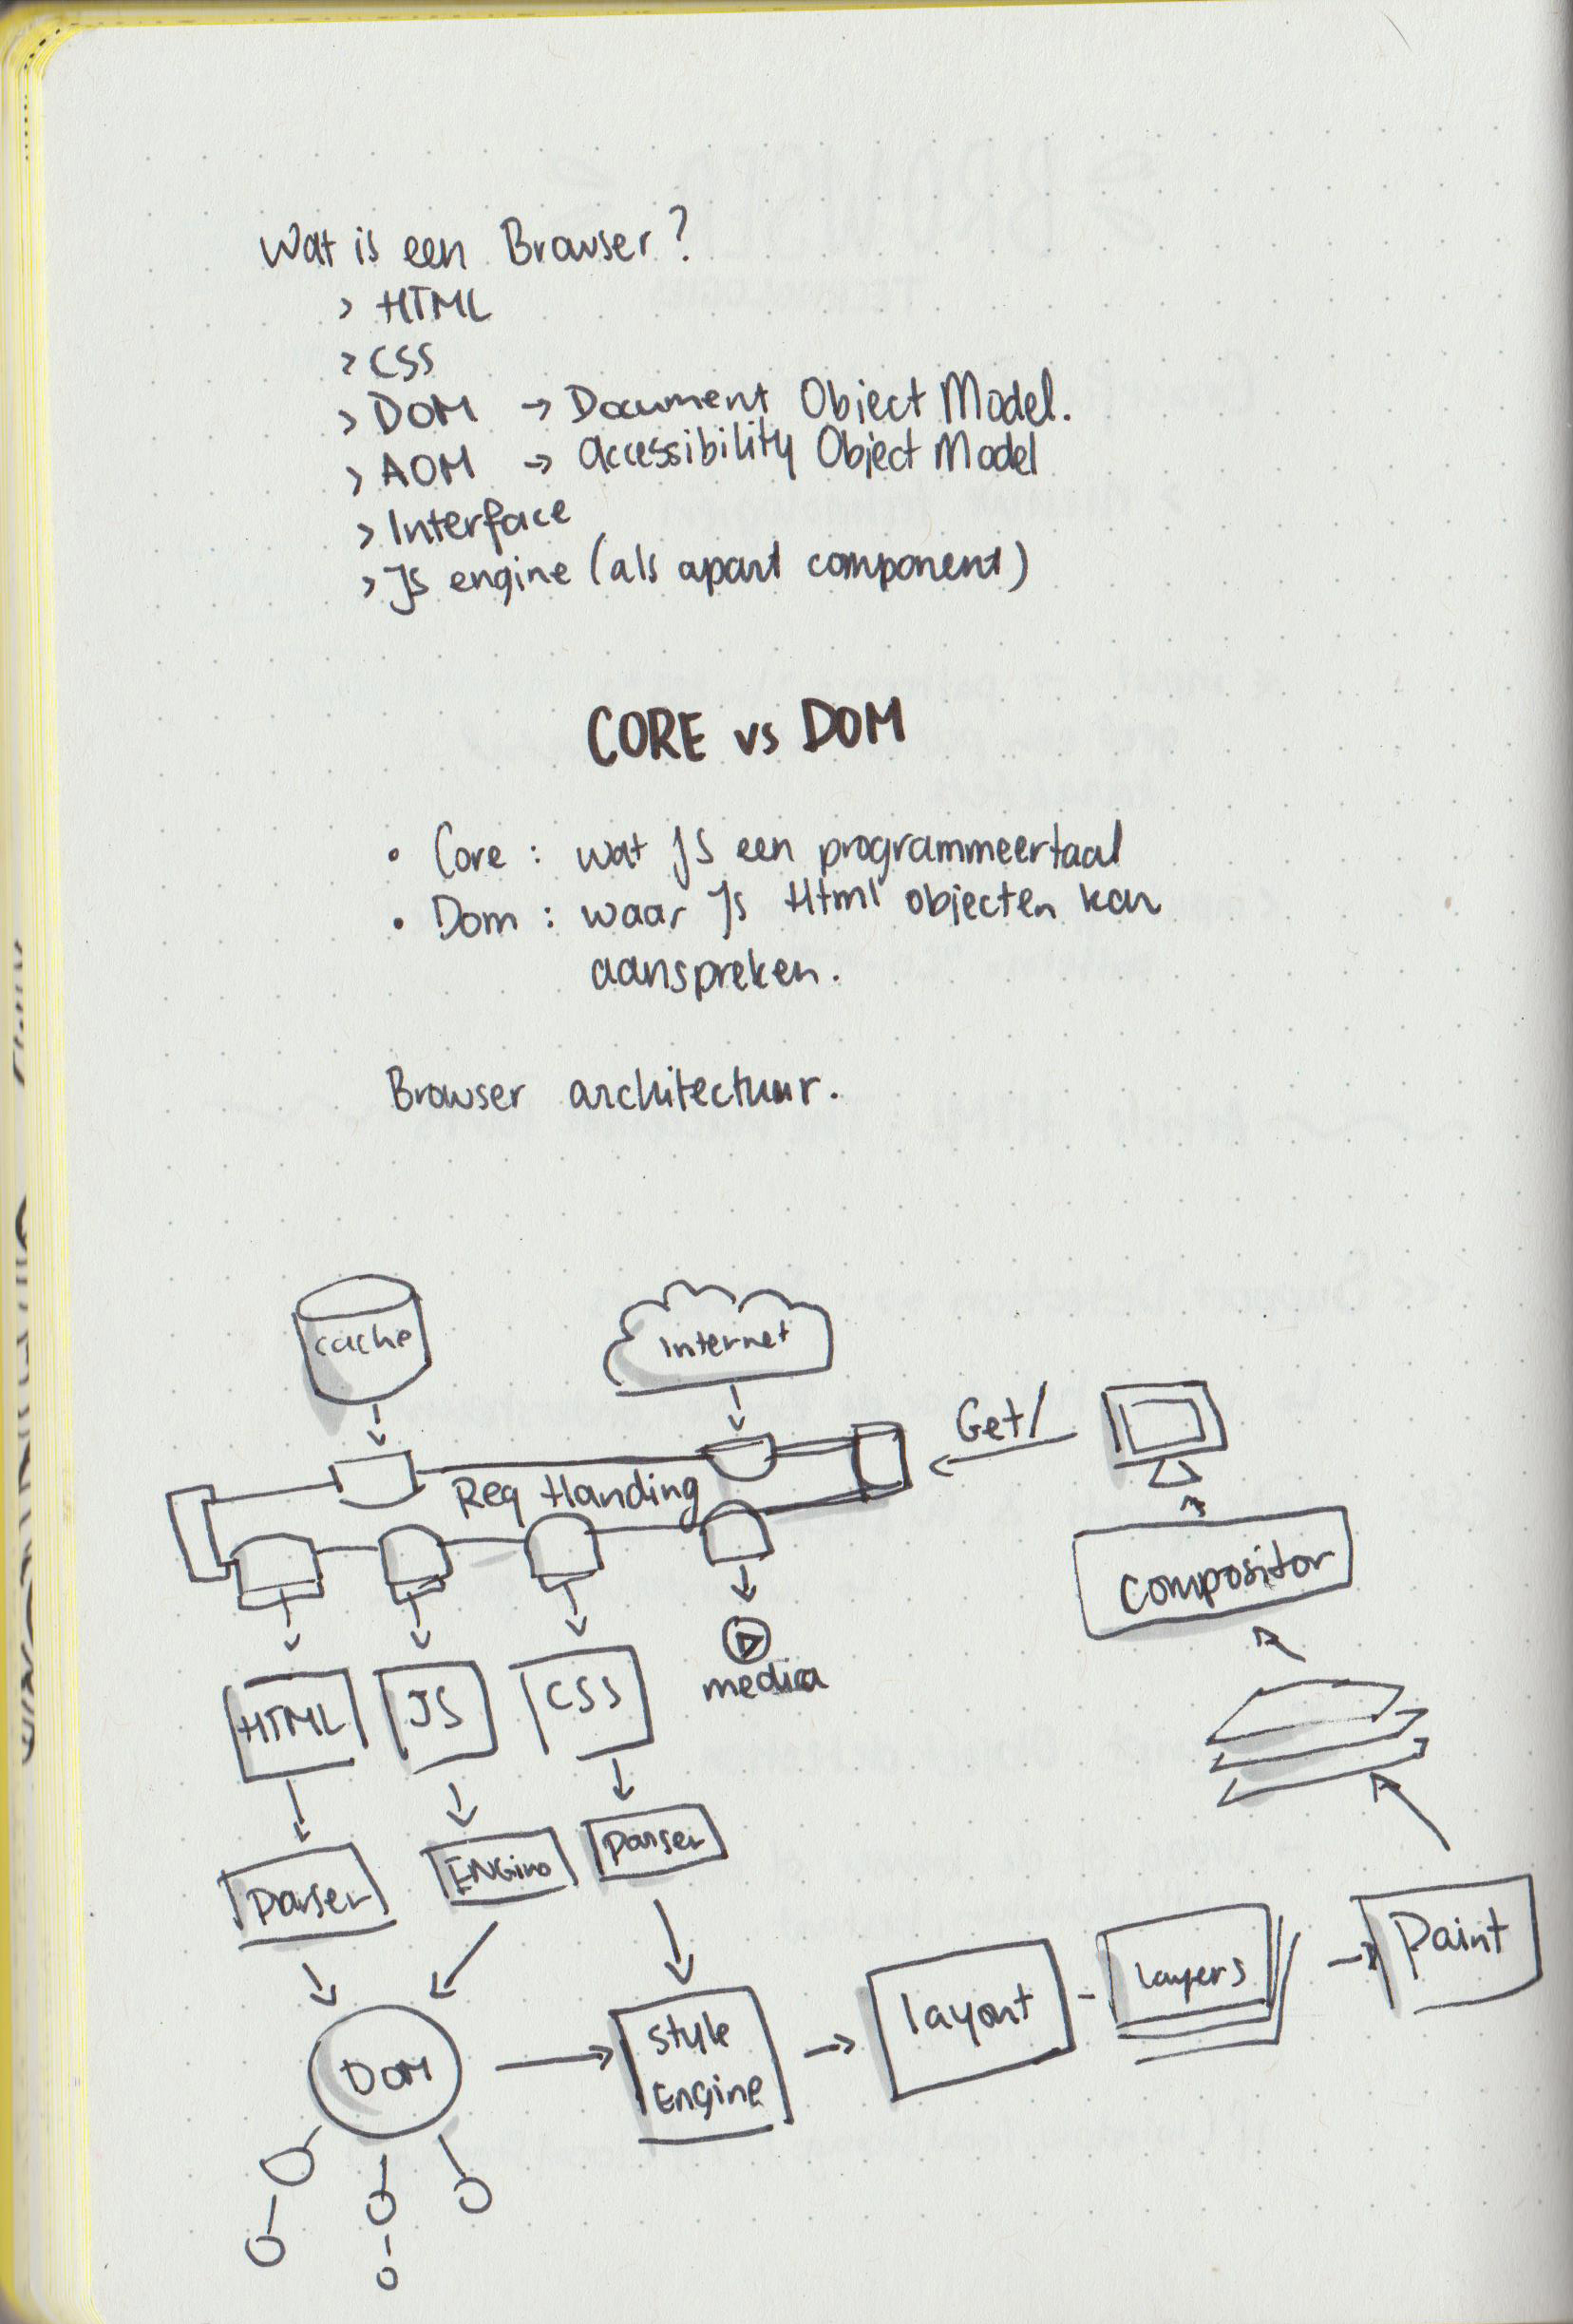 Wat is een Browser?
> HTML
> CSS
> DOM → Document Object Model.
> AOM → Accessibility Object Model
> Interface
> Js engine (als apart component)
CORE vs DOM
• Core : wat JS een programmeertaal
• Dom : waar Js Html objecten kan
aanspreken.
Browser architectuur.
cache
internet
Get/
Req Handing
compositor
media
HTML
JS
CSS
Parser
ENGine
parser
DOM
style
Engine
layout
layers
Paint